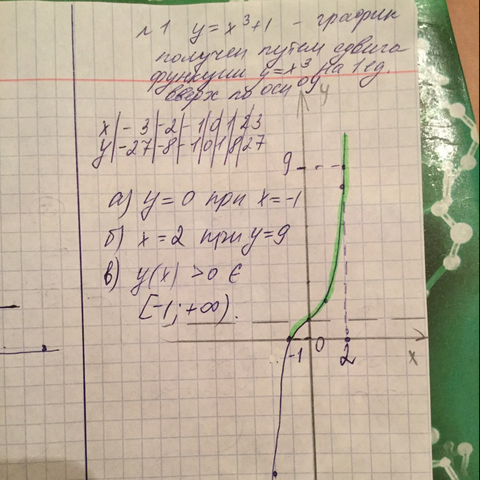 №1 y = x³+1 - график
получен путем сдвига
функции y=x³ на 1 ед.
вверх по оси oy
x|-3|-2|-1|0|1|2|3
y|-27|-8|-1|0|1|8|27
а) y=0 при x=-1
б) x=2 при y=9
в) y(x) >0 ∈
[-1;+∞).
y
9
-1 0 2 x